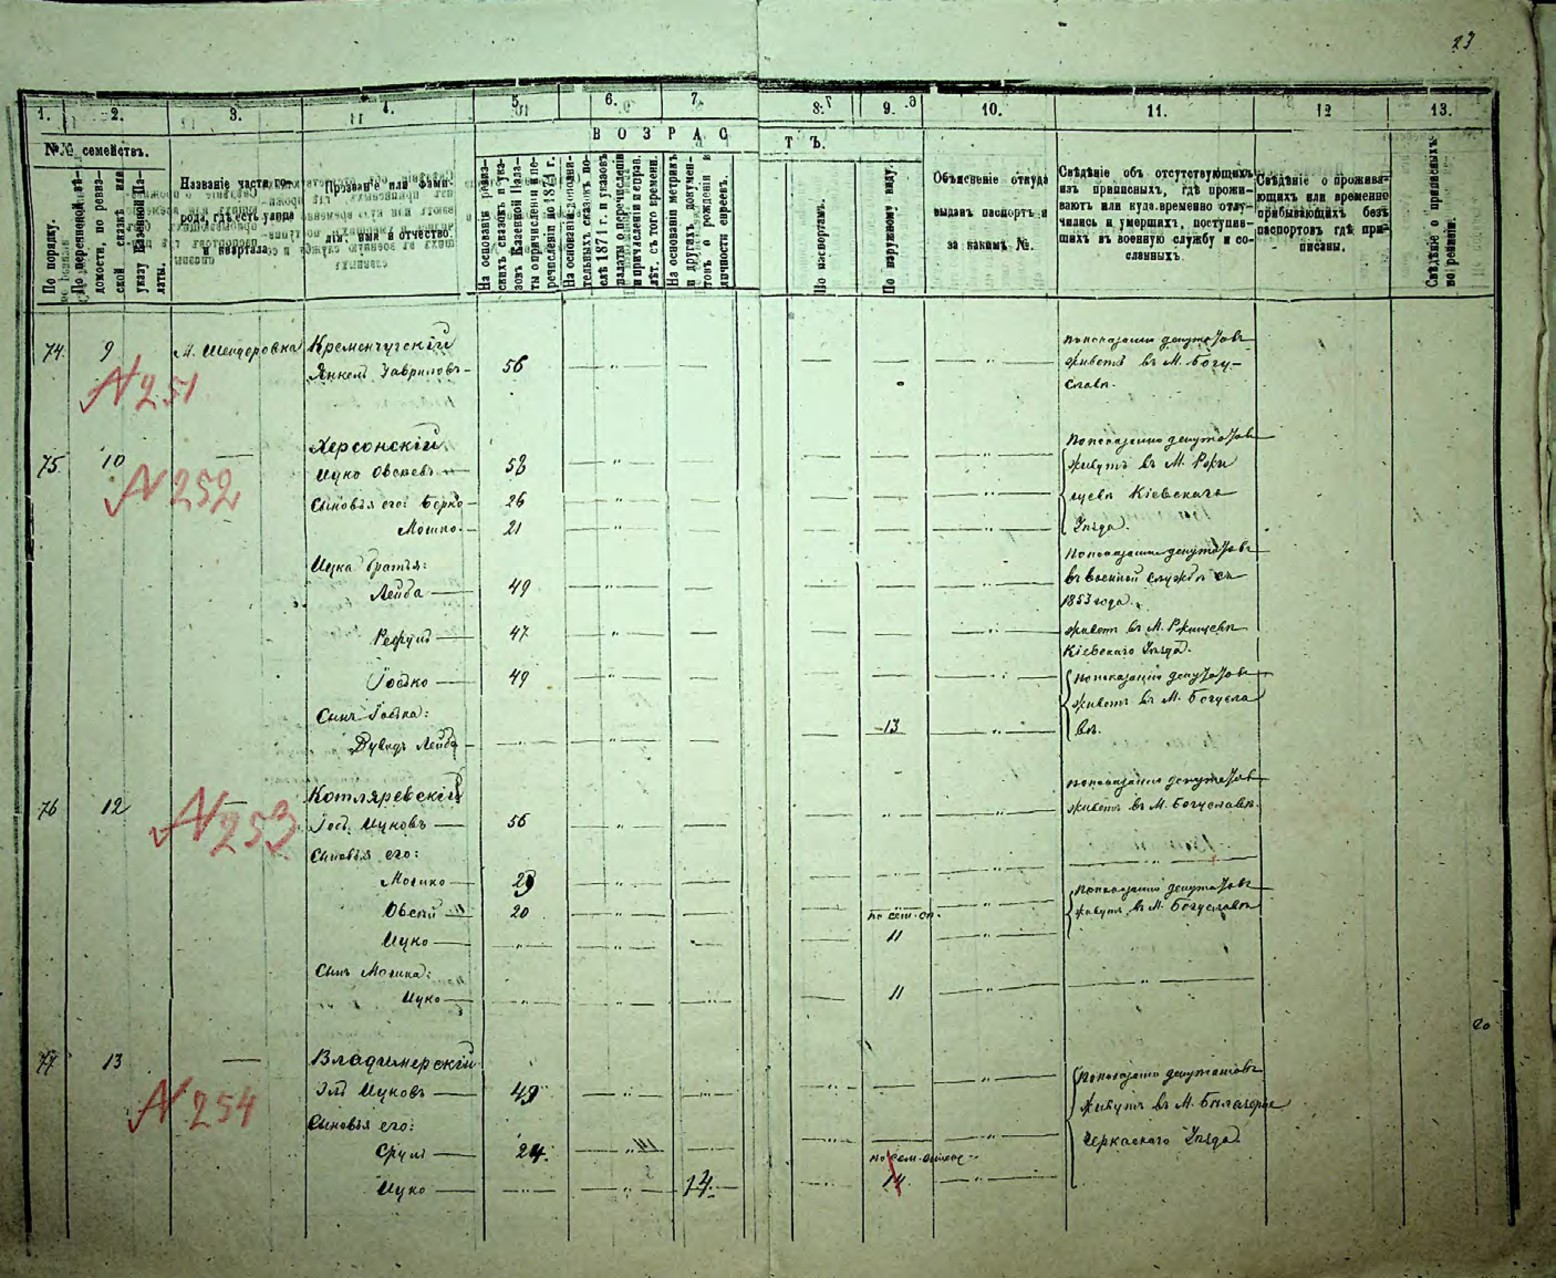 23
1. 2. 3. 4. 5. 6. 7. 8. 9. 10. 11. 12 13.
В О З Р А С Т Ъ.
№№ семействъ.
По порядку.
По переченной вѣ-
домости, по ревиз-
ской сказкѣ или
указу Казенной Па-
латы.
Названіе части го-
рода, гдѣ есть уѣзда
и квартала
Прозваніе или фами-
лія, имя и отчество.
На основаніи ревиз-
скихъ сказокъ ука-
зовъ Казенной Пала-
ты о причисленіи и пе-
речисленіи по 1874 г.
На основаніи дополни-
тельныхъ сказокъ по-
слѣ 1874 г. и указовъ
палаты о перечисленіи
и причисленіи и справ.
лѣт. съ того времени.
На основаніи метрикъ
и другихъ докумен-
товъ о рожденіи и
личности евреевъ.
По паспортамъ.
По наружному виду.
Объясненіе откуда
выданъ паспортъ и
за какимъ №.
Свѣдѣніе объ отсутствующихъ
изъ приписныхъ, гдѣ прожи-
ваютъ или куда временно отлу-
чились и умершихъ, поступив-
шихъ въ военную службу и со-
сланныхъ.
Свѣдѣніе о прожива-
ющихъ или временно
прибывающихъ безъ
паспортовъ гдѣ при-
писаны.
Свѣдѣніе о приписныхъ
по религіи.
74. 9 М. Шендеровка Кременчугскій
Янкель Гавриловъ 56
По показанію депутатовъ
живетъ въ М. Богу-
славѣ.
N 251
75. 10 Херсонскій
Ицко Овсеевъ 52
По показанію депутатовъ
живутъ въ М. Ржи
щевѣ Кіевскаго
Уѣзда.
N 252
Сыновья его: Берко 26
Мошко 21
Ицка братья:
Лейба 49
По показанію депутатовъ
въ военной службѣ съ
1853 года.
47
живетъ въ М. Ржищевѣ
Кіевскаго Уѣзда.
Іосько 49
По показанію депутатовъ
живетъ въ М. Богусла
вѣ.
Сынъ Іоська:
Дувидъ Лейба 13
76 12 Котляревскій
Іось Ицковъ 56
По показанію депутатовъ
живетъ въ М. Богуславѣ.
N 253
Сыновья его:
Мошко 29
Овсей 20
По показанію депутатовъ
живутъ въ М. Богуславѣ
по сем. сп.
Ицко 11
Сынъ Мошка:
Ицко 11
20
77 13 Владимерскій
Эль Ицковъ 49
По показанію депутатовъ
живутъ въ М.
Черкаскаго Уѣзда.
N 254
Сыновья его:
Сруль 24.
по сем.
Ицко 14 14